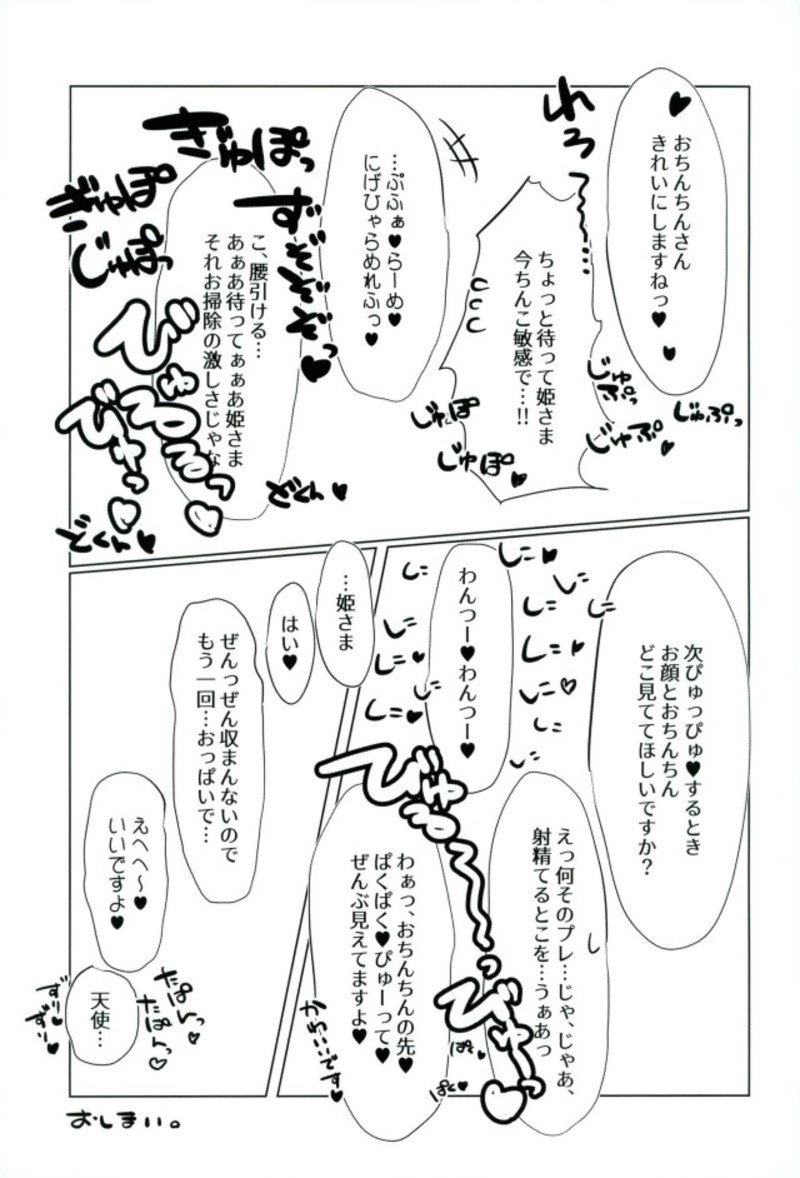 おちんちんさん
きれいにしますねっ♥
れろ
ちょっと待って姫さま
今ちんこ敏感で…!!
じゅぷっ
じゅぷ♥
じゅぷっ
じゅぽ
じゅぽ♥
…ぷふぁ♥らーめ♥
にげひゃらめれふっ♥
ずぞぞぞっ♥
ぎゅぽっ
こ、腰引ける…
あぁあ待ってぁぁあ姫さま
それお掃除の激しさじゃな
どくん♥
どくん♥
次ぴゅっぴゅ♥するとき
お顔とおちんちん
どこ見ててほしいですか?
えっ何そのプレ…じゃ、じゃあ、
射精てるとこを…うぁあっ
わんつー♥わんつー♥
わぁっ、おちんちんの先♥
ぱくぱく♥ぴゅーって♥
ぜんぶ見えてますよ♥
かわいいです♥
ぱく♥
…姫さま
はい♥
ぜんっぜん収まんないので
もう一回…おっぱいで…
えへへ〜♥
いいですよ♥
たぽんっ
たぽんっ♡
天使…
おしまい。